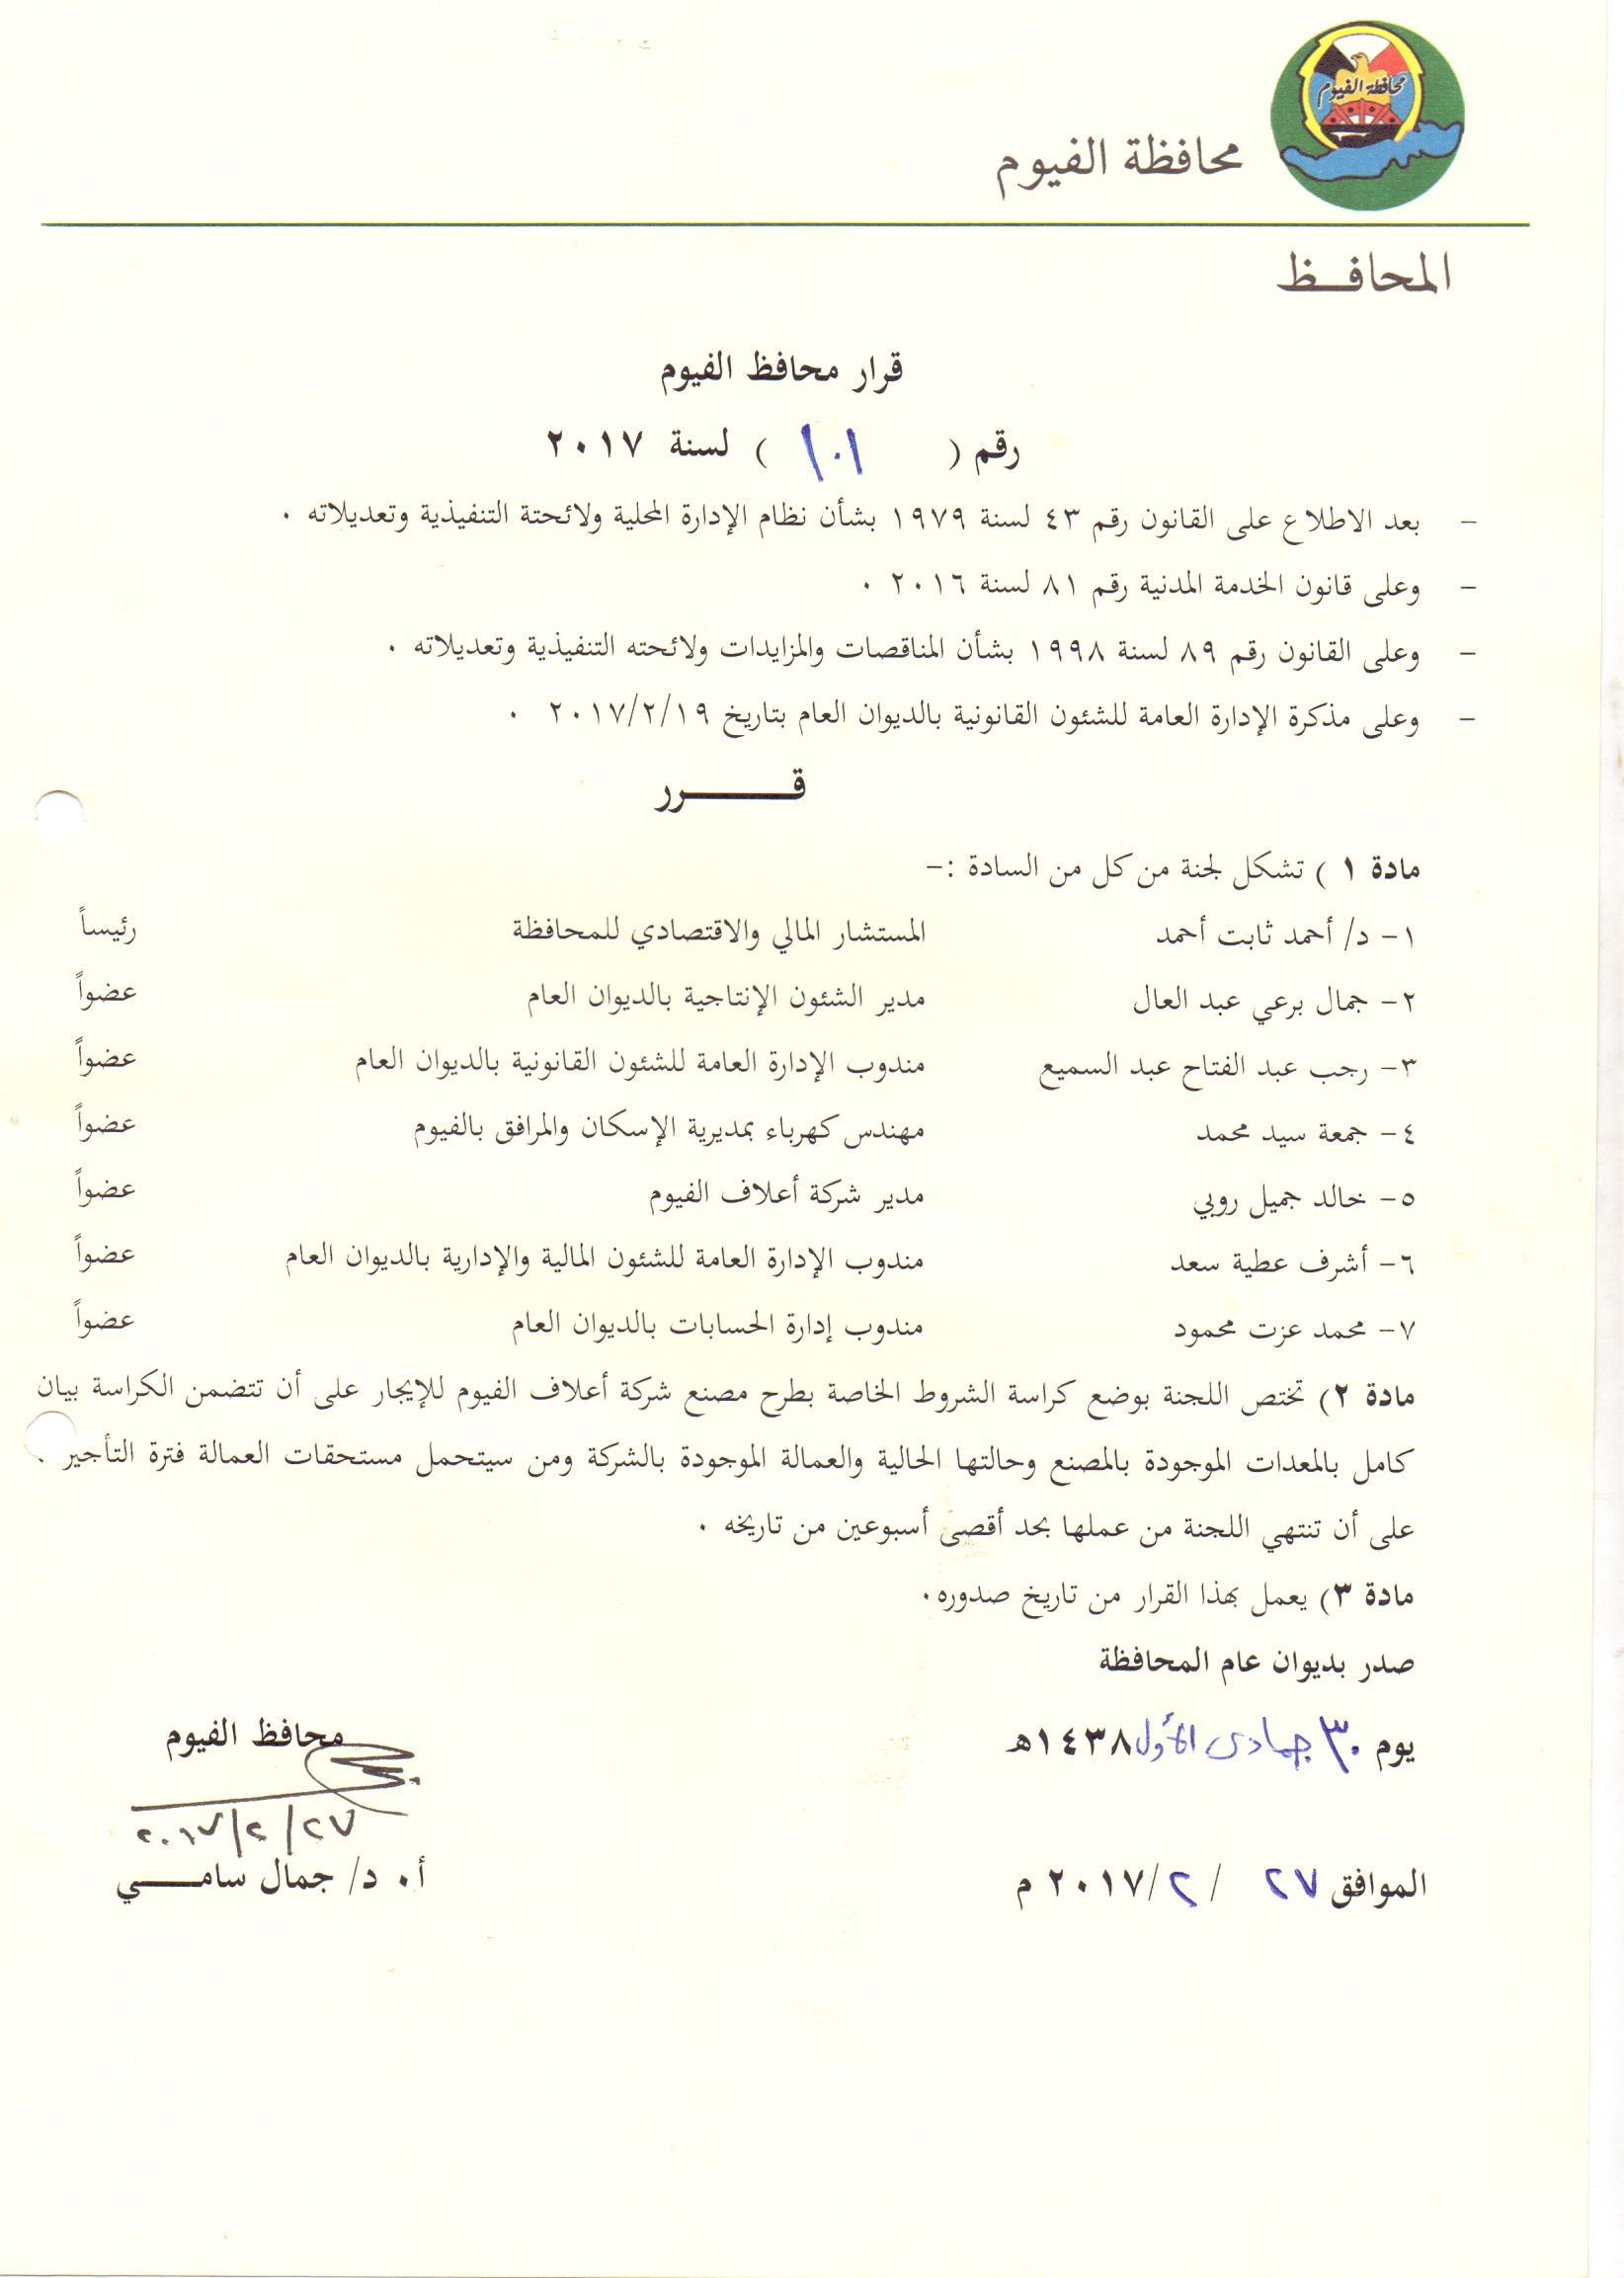 محافظة الفيوم
محافظة الفيوم
المحافـــظ
قرار محافظ الفيوم
رقم ( ١٠١ ) لسنة ٢٠١٧
- بعد الاطلاع على القانون رقم ٤٣ لسنة ١٩٧٩ بشأن نظام الإدارة المحلية ولائحتة التنفيذية وتعديلاته .
- وعلى قانون الخدمة المدنية رقم ٨١ لسنة ٢٠١٦ .
- وعلى القانون رقم ٨٩ لسنة ١٩٩٨ بشأن المناقصات والمزايدات ولائحته التنفيذية وتعديلاته .
- وعلى مذكرة الإدارة العامة للشئون القانونية بالديوان العام بتاريخ ٢٠١٧/٢/١٩ .
قــــــــرر
مادة ١ ) تشكل لجنة من كل من السادة :-
١- د/ أحمد ثابت أحمد المستشار المالي والاقتصادي للمحافظة رئيساً
٢- جمال برعي عبد العال مدير الشئون الإنتاجية بالديوان العام عضواً
٣- رجب عبد الفتاح عبد السميع مندوب الإدارة العامة للشئون القانونية بالديوان العام عضواً
٤- جمعة سيد محمد مهندس كهرباء بمديرية الإسكان والمرافق بالفيوم عضواً
٥- خالد جميل روبي مدير شركة أعلاف الفيوم عضواً
٦- أشرف عطية سعد مندوب الإدارة العامة للشئون المالية والإدارية بالديوان العام عضواً
٧- محمد عزت محمود مندوب إدارة الحسابات بالديوان العام عضواً
مادة ٢) تختص اللجنة بوضع كراسة الشروط الخاصة بطرح مصنع شركة أعلاف الفيوم للإيجار على أن تتضمن الكراسة بيان
كامل بالمعدات الموجودة بالمصنع وحالتها الحالية والعمالة الموجودة بالشركة ومن سيتحمل مستحقات العمالة فترة التأجير .
على أن تنتهي اللجنة من عملها بحد أقصى أسبوعين من تاريخه .
مادة ٣) يعمل بهذا القرار من تاريخ صدوره.
صدر بديوان عام المحافظة
يوم ٣٠ جمادى الأول ١٤٣٨هـ
الموافق ٢٧ / ٢ /٢٠١٧ م
محافظ الفيوم
٢٧/٢/٢٠١٧
أ. د/ جمال سامـــــي